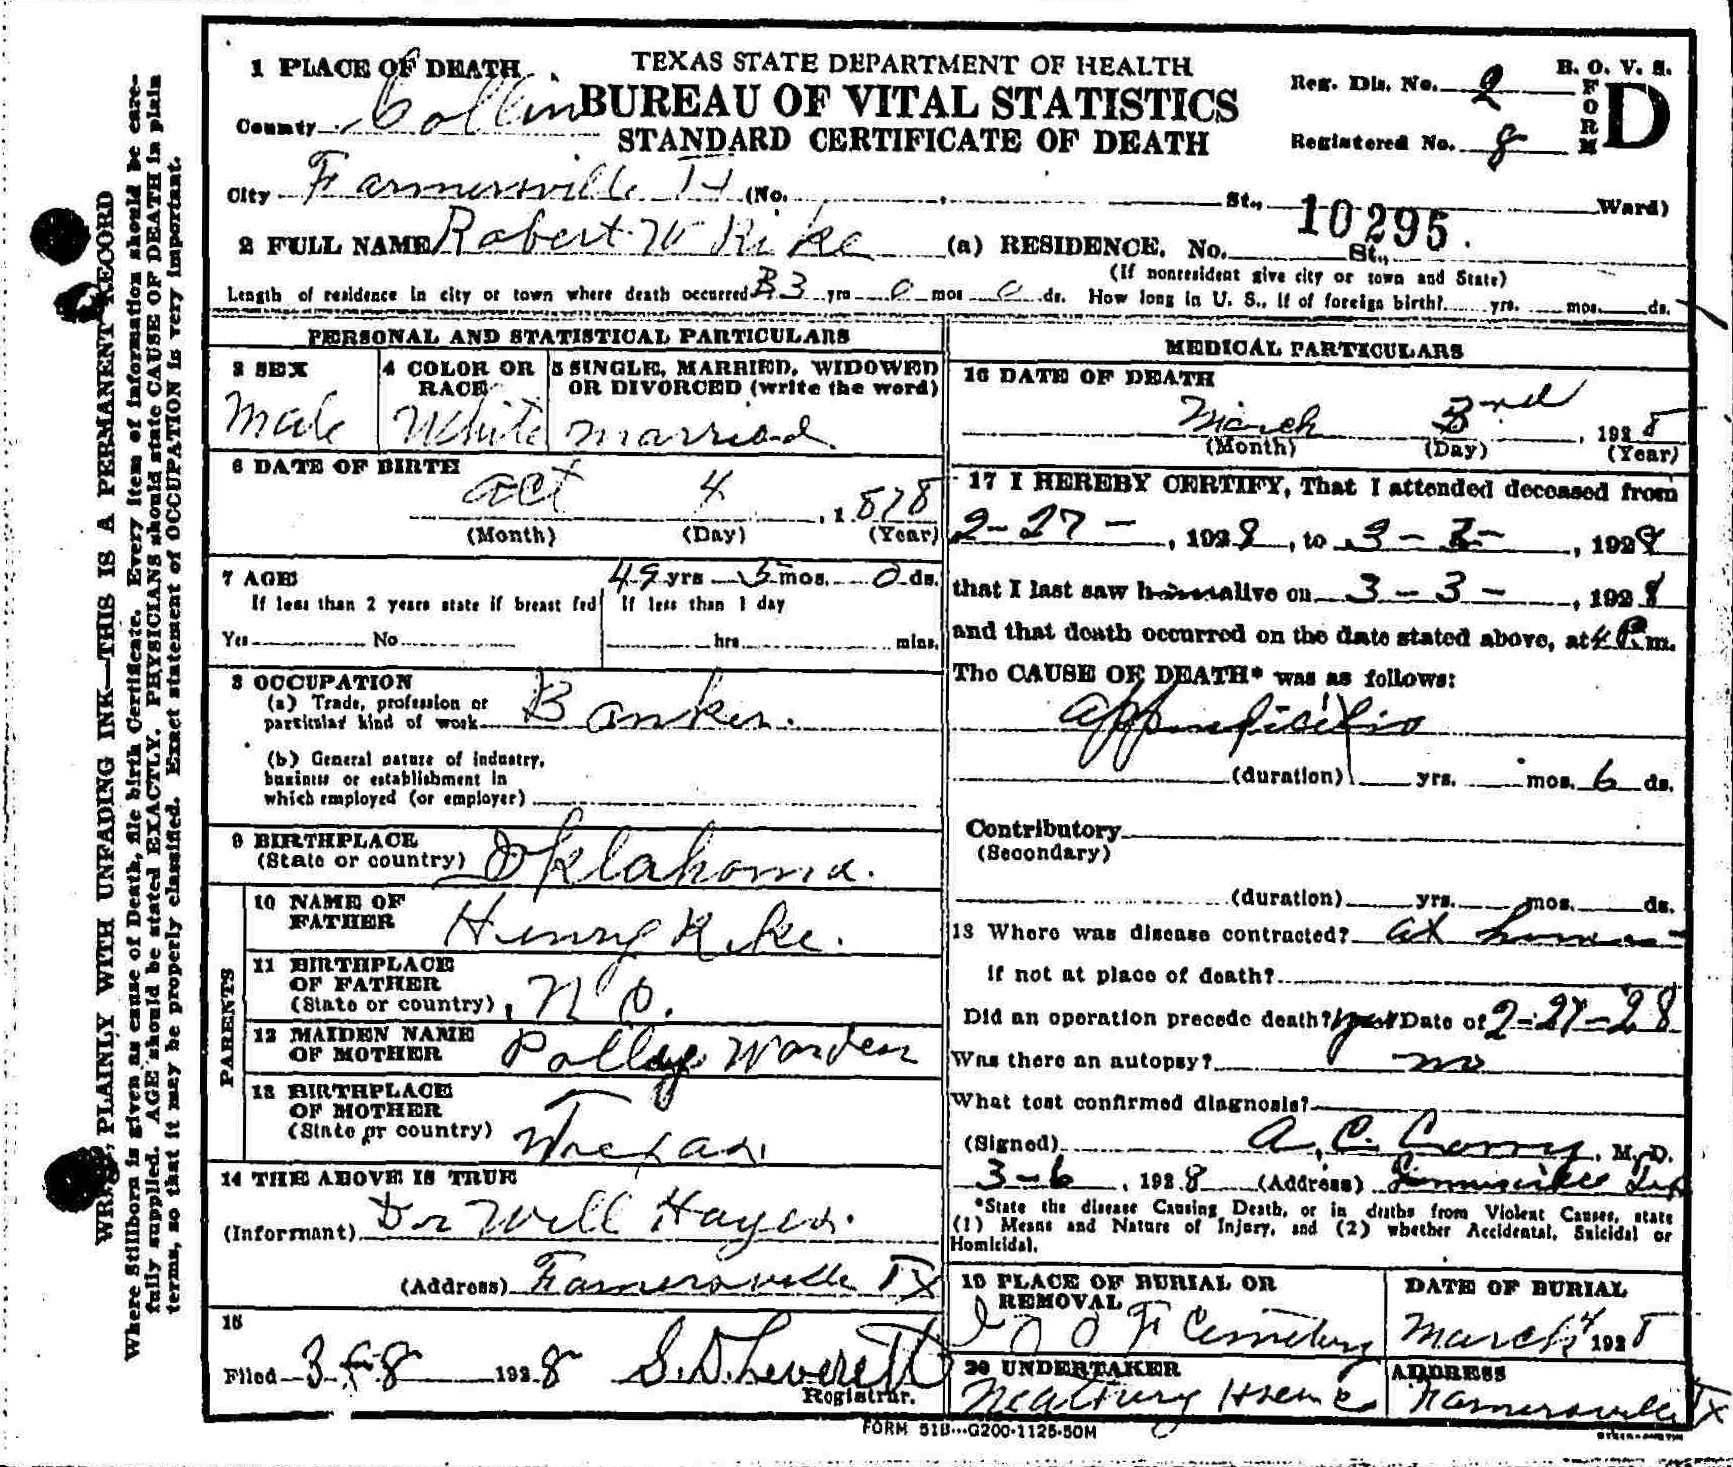 1 PLACE OF DEATH
TEXAS STATE DEPARTMENT OF HEALTH
BUREAU OF VITAL STATISTICS
STANDARD CERTIFICATE OF DEATH
Reg. Dis. No. 2
Registered No. 8
B. O. V. S.
FORM D
County Collin
City Farmersville TX (No. St., Ward)
10295
2 FULL NAME Robert W Rike (a) RESIDENCE. No. St.,
(If nonresident give city or town and State)
Length of residence in city or town where death occurred yrs 0 mos 0 ds. How long in U. S., if of foreign birth? yrs. mos. ds.
PERSONAL AND STATISTICAL PARTICULARS
3 SEX
Male
4 COLOR OR RACE
White
5 SINGLE, MARRIED, WIDOWED OR DIVORCED (write the word)
married
6 DATE OF BIRTH
Oct 4, 1878
(Month) (Day) (Year)
7 AGE 49 yrs 5 mos. 0 ds.
If less than 2 years state if breast fed If less than 1 day
Yes No hrs mins.
8 OCCUPATION
(a) Trade, profession or
particular kind of work Banker.
(b) General nature of industry,
business or establishment in
which employed (or employer)
9 BIRTHPLACE
(State or country) Oklahoma.
PARENTS
10 NAME OF
FATHER Henry Rike.
11 BIRTHPLACE
OF FATHER
(State or country) N C.
12 MAIDEN NAME
OF MOTHER Polly Worden
13 BIRTHPLACE
OF MOTHER
(State or country)
14 THE ABOVE IS TRUE
(Informant) Dr Will Hayes.
(Address) Farmersville TX
15
Filed 3-8 1928 S. D. Leverett
Registrar.
MEDICAL PARTICULARS
16 DATE OF DEATH
March 3rd, 1928
(Month) (Day) (Year)
17 I HEREBY CERTIFY, That I attended deceased from
2-27-, 1928, to 3-3-, 1928
that I last saw him alive on 3-3-, 1928
and that death occurred on the date stated above, at 4 P. m.
The CAUSE OF DEATH* was as follows:
Appendicitis
(duration) yrs. mos. 6 ds.
Contributory
(Secondary)
(duration) yrs. mos. ds.
18 Where was disease contracted? at home
if not at place of death?
Did an operation precede death? yes Date of 2-27-28
Was there an autopsy? no
What test confirmed diagnosis?
(Signed) A. C. , M. D.
3-6, 1928 (Address) Farmersville Tex
*State the disease Causing Death, or in deaths from Violent Causes, state
(1) Means and Nature of Injury, and (2) whether Accidental, Suicidal or
Homicidal.
19 PLACE OF BURIAL OR
REMOVAL
I O O F Cemetery
DATE OF BURIAL
March 4 1928
20 UNDERTAKER
ADDRESS
Farmersville TX
FORM 51B---G200-1125-50M
WRITE PLAINLY WITH UNFADING INK—THIS IS A PERMANENT RECORD
Where Stillborn is given as cause of Death, file birth Certificate. Every item of information should be care-
fully supplied. AGE should be stated EXACTLY. PHYSICIANS should state CAUSE OF DEATH in plain
terms, so that it may be properly classified. Exact statement of OCCUPATION is very important.